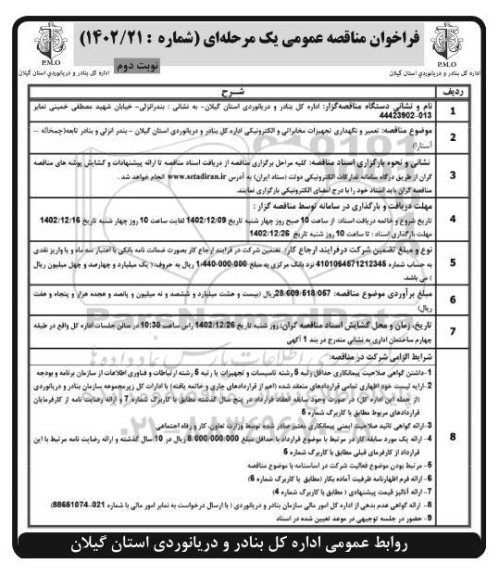 فراخوان مناقصه عمومی یک مرحله‌ای (شماره : ۱۴۰۲/۲۱)
نوبت دوم
P.M.O
اداره کل بنادر و دریانوردی استان گیلان
P.M.O
اداره کل بنادر و دریانوردی استان گیلان
ردیف شرح
1 نام و نشانی دستگاه مناقصه‌گزار: اداره کل بنادر و دریانوردی استان گیلان- به نشانی : بندرانزلی- خیابان شهید مصطفی خمینی نمابر
013-44423902
2 موضوع مناقصه: تعمیر و نگهداری تجهیزات مخابراتی و الکترونیکی اداره کل بنادر و دریانوردی استان گیلان – بندر انزلی و بنادر تابعه(چمخاله –
آستارا)
3 نشانی و نحوه بارگزاری اسناد مناقصه: کلیه مراحل برگزاری مناقصه از دریافت اسناد مناقصه تا ارائه پیشنهادات و گشایش پوشه های مناقصه
گران از طریق درگاه سامانه تدارکات الکترونیکی دولت (ستاد ایران) به آدرس www.setadiran.ir انجام خواهد شد .
مناقصه گران باید اسناد خود را با درج امضای الکترونیکی بارگزاری نمایند.
4 مهلت دریافت و بارگذاری در سامانه توسط مناقصه گزار :
تاریخ شروع و خاتمه دریافت اسناد: از ساعت 10 صبح روز چهار شنبه تاریخ 1402/12/09 لغایت ساعت 10 روز چهار شنبه تاریخ 1402/12/16
مهلت بارگذاری اسناد : تا ساعت 10 روز شنبه تاریخ 1402/12/26
5 نوع و مبلغ تضمین شرکت درفرایند ارجاع کار: تضمین شرکت در فرایند ارجاع کار بصورت ضمانت نامه بانکی با اعتبار سه ماه و یا واریز نقدی
به حساب شماره 4101064571212345 نزد بانک مرکزی به مبلغ 1/440/000/000 ریال به حروف: ( یک میلیارد و چهارصد و چهل میلیون ریال
) می باشد.
6 مبلغ برآوردی موضوع مناقصه: 28/609/518/057ریال (بیست و هشت میلیارد و ششصد و نه میلیون و پانصد و هجده هزار و پنجاه و هفت
ریال)
7 تاریخ، زمان و محل گشایش اسناد مناقصه گران: روز شنبه تاریخ 1402/12/26 راس ساعت 10:30 در سالن جلسات اداره کل واقع در طبقه
چهارم ساختمان اداری به نشانی مندرج در بند 1 آگهی
8 شرایط الزامی شرکت در مناقصه:
1- داشتن گواهی صلاحیت پیمانکاری حداقل رتبه 5 رشته تاسیسات و تجهیزات یا رتبه 5 رشته ارتباطات و فناوری اطلاعات از سازمان برنامه و بودجه
2- ارایه لیست خود اظهاری تمامی قراردادهای منعقد شده (اعم از قراردادهای جاری و خاتمه یافته) با ادارات کل زیرمجموعه سازمان بنادر و دریانوردی
( از جمله این اداره کل)، در صورت وجود سابقه انعقاد قرارداد در پنج سال گذشته مطابق با کاربرگ شماره 7 و ارائه رضایت نامه از کارفرمایان
قراردادهای مربوط مطابق با کاربرگ شماره 5
3- ارائه گواهی تائید صلاحیت ایمنی پیمانکاری معتبر صادر شده توسط وزارت تعاون، کار و رفاه اجتماعی
4- ارائه یک مورد سابقه کار در مرتبط با موضوع قرارداد با حداقل مبلغ 8/000/000/000 ریال در 10 سال گذشته و ارائه رضایت نامه مرتبط با این
قرارداد از کارفرمای قبلی مطابق با کاربرگ شماره 5
5- مرتبط بودن موضوع فعالیت شرکت در اساسنامه با موضوع مناقصه
6- ارائه فرم اظهارنامه ظرفیت آماده بکار (مطابق با کاربرگ شماره 6)
7- ارائه آنالیز قیمت پیشنهادی ( مطابق با کاربرگ شماره 4)
8- ارائه گواهی عدم بدهی از اداره کل امور مالی سازمان بنادر و دریانوردی ( با ارسال درخواست به نمابر امور مالی با شماره 021-88651074)
9- حضور در جلسه توجیهی در موعد تعیین شده در اسناد
روابط عمومی اداره کل بنادر و دریانوردی استان گیلان